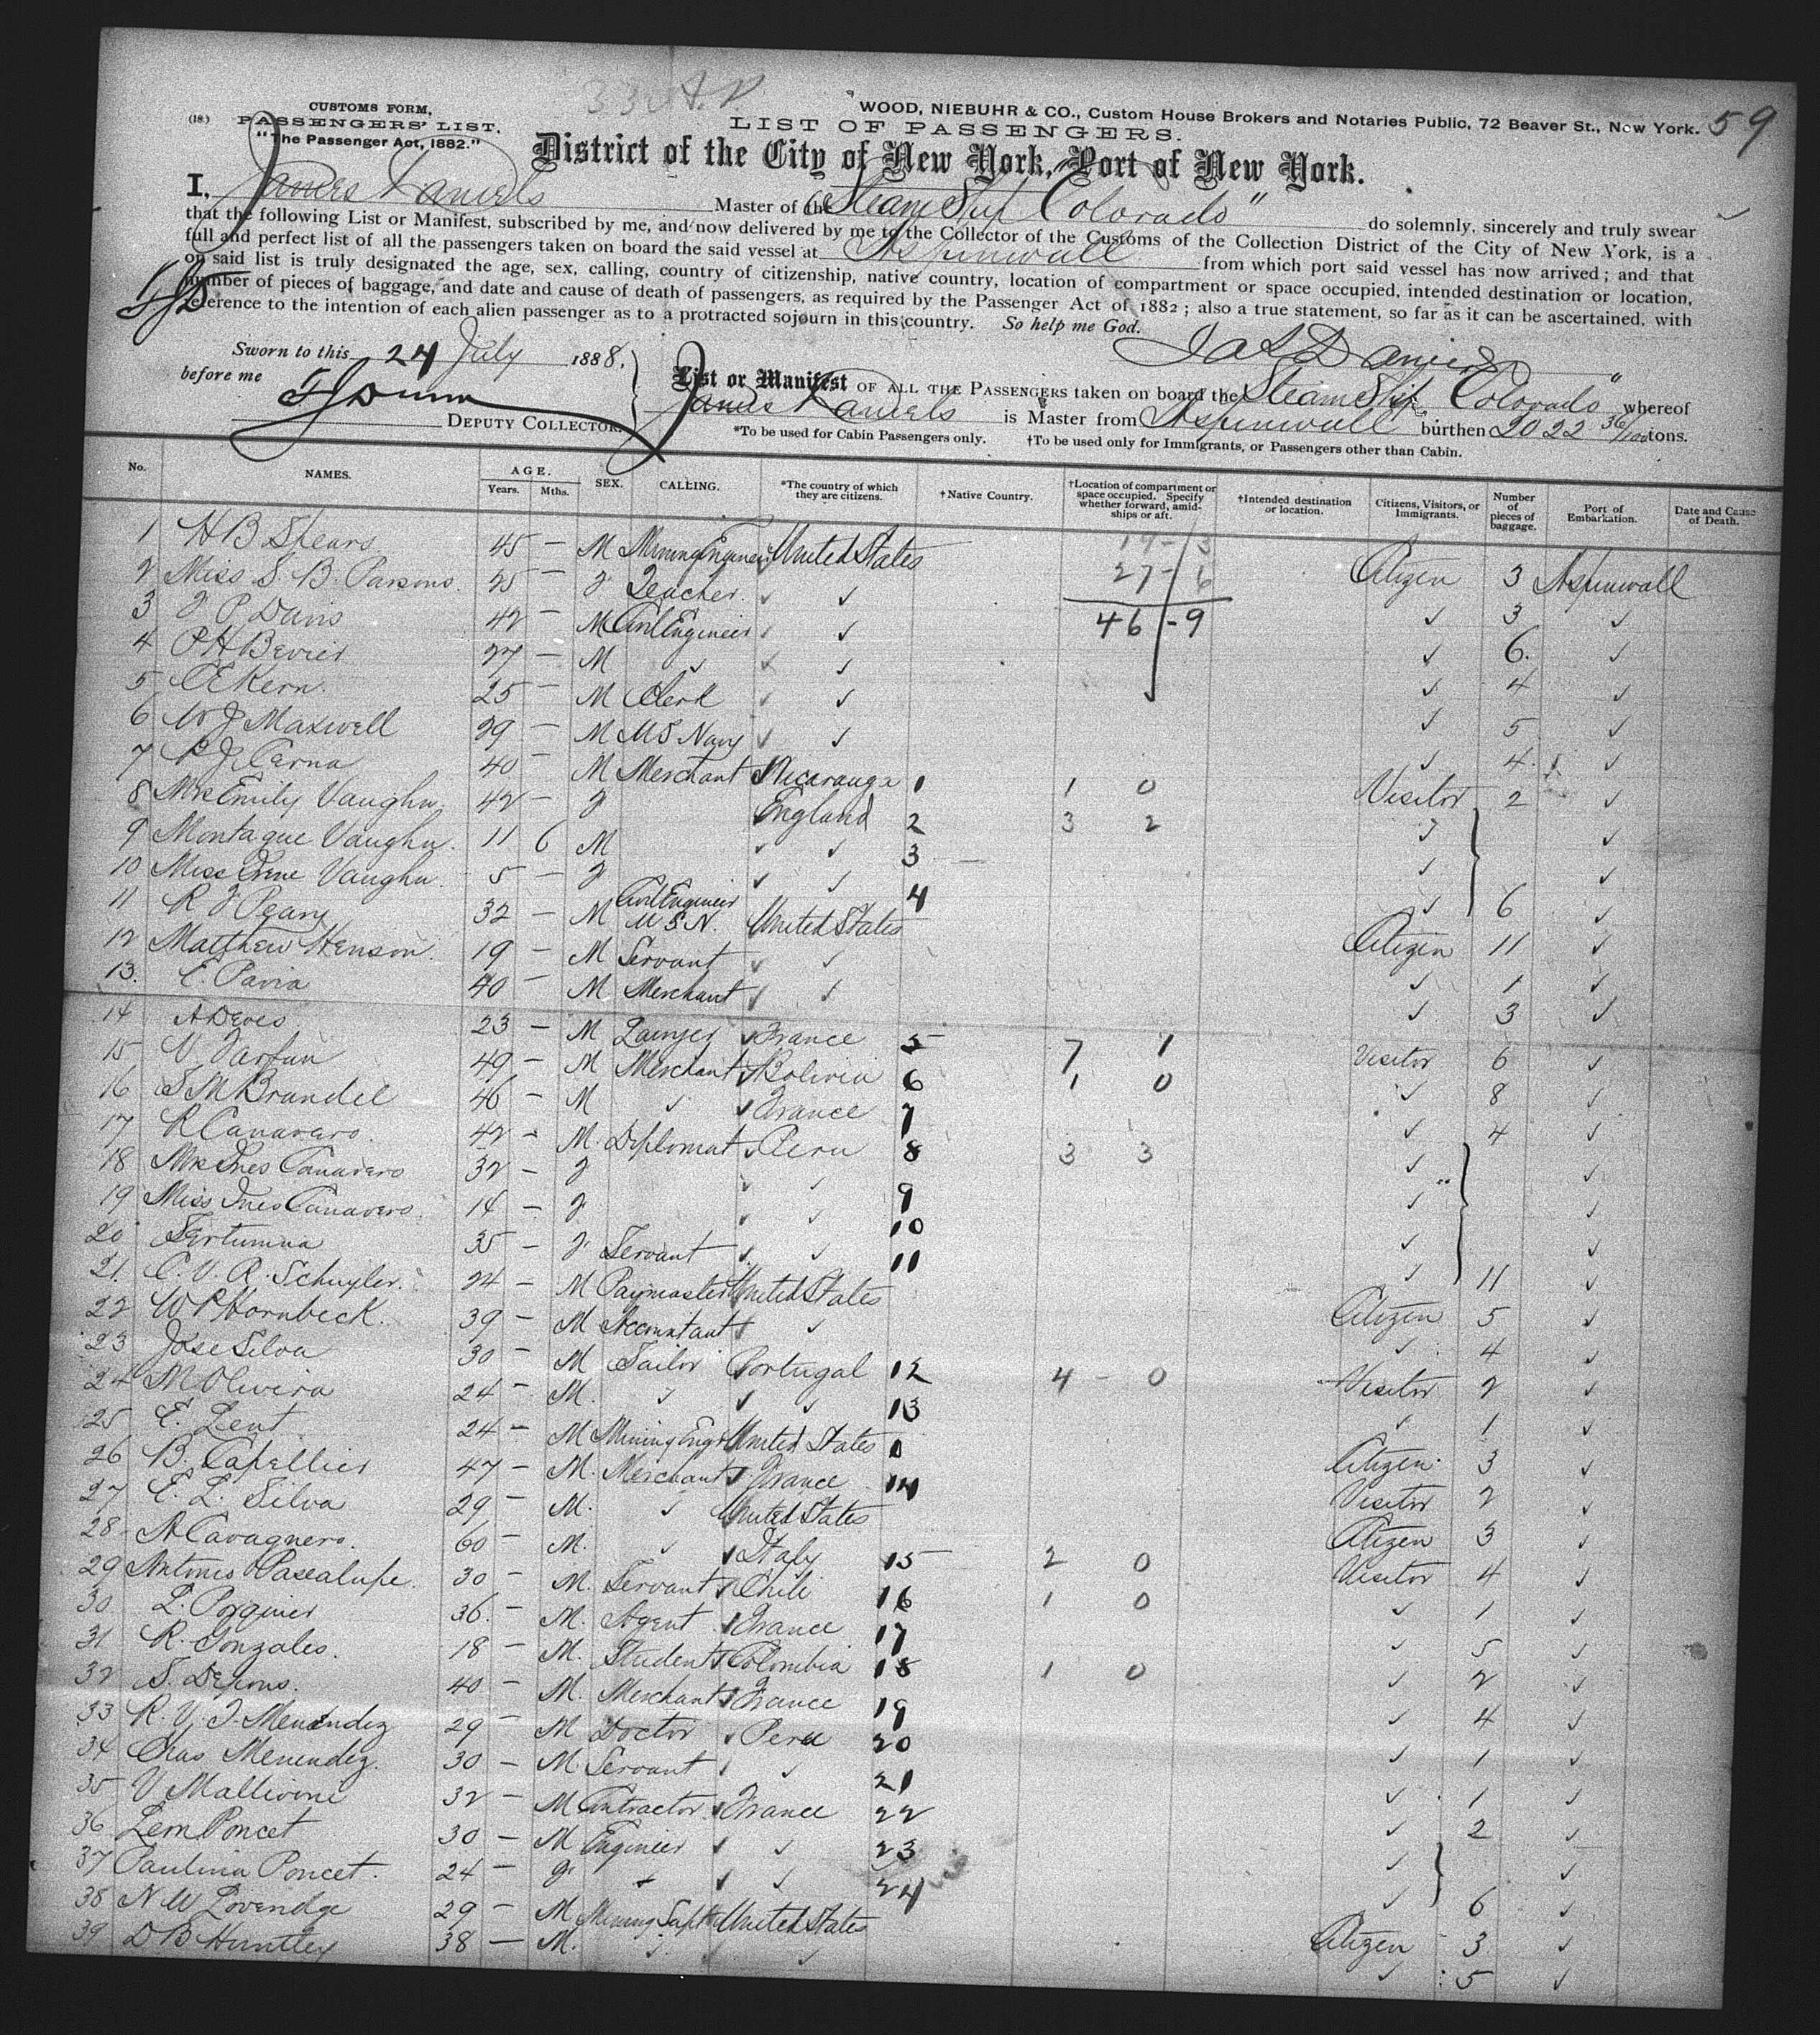 33 A.P.
59
CUSTOMS FORM,
(18.) PASSENGERS' LIST.
"The Passenger Act, 1882."
WOOD, NIEBUHR & CO., Custom House Brokers and Notaries Public, 72 Beaver St., New York.
LIST OF PASSENGERS.
District of the City of New York, Port of New York.
I, James Daniels Master of the "Steam Ship Colorado" do solemnly, sincerely and truly swear
that the following List or Manifest, subscribed by me, and now delivered by me to the Collector of the Customs of the Collection District of the City of New York, is a
full and perfect list of all the passengers taken on board the said vessel at Aspinwall from which port said vessel has now arrived; and that
on said list is truly designated the age, sex, calling, country of citizenship, native country, location of compartment or space occupied, intended destination or location,
number of pieces of baggage, and date and cause of death of passengers, as required by the Passenger Act of 1882; also a true statement, so far as it can be ascertained, with
reference to the intention of each alien passenger as to a protracted sojourn in this country. So help me God.
Sworn to this 24 July 1888,
before me
DEPUTY COLLECTOR.
Jas Daniels
List or Manifest OF ALL THE PASSENGERS taken on board the Steam Ship Colorado whereof
James Daniels is Master from Aspinwall burthen 2022 36/100 tons.
*To be used for Cabin Passengers only. †To be used only for Immigrants, or Passengers other than Cabin.
No. NAMES. AGE. Years. Mths. SEX. CALLING. *The country of which they are citizens. †Native Country. †Location of compartment or space occupied. Specify whether forward, amidships or aft. †Intended destination or location. Citizens, Visitors, or Immigrants. Number of pieces of baggage. Port of Embarkation. Date and Cause of Death.
19 - 3
27 - 6
46 - 9
1 H B Spears 45 — M Mining Engineer United States Citizen 3 Aspinwall
2 Miss S. B. Parsons 25 — F Teacher ✓ ✓ ✓ 3 ✓
3 F P Davis 42 — M Civil Engineer ✓ ✓ ✓ 6 ✓
4 P H Bevier 27 — M ✓ ✓ ✓ ✓ 4 ✓
5 C E Kern 25 — M Clerk ✓ ✓ ✓ 5 ✓
6 W J Maxwell 29 — M U S Navy ✓ ✓ ✓ 4 ✓
7 R J Cerna 40 — M Merchant Nicaragua 1 1 0 Visitor 2 ✓
8 Mrs Emily Vaughn 42 — F England 2 3 2 ✓ ✓
9 Montague Vaughn 11 6 M ✓ ✓ 3 ✓ ✓
10 Miss Irene Vaughn 5 — F ✓ ✓ 4 ✓ 6 ✓
11 R F Peary 32 — M Civil Engineer U S N. United States Citizen 11 ✓
12 Matthew Henson 19 — M Servant ✓ ✓ ✓ 1 ✓
13 E. Pavia 40 — M Merchant ✓ ✓ ✓ 3 ✓
14 A Deves 23 — M Lawyer France 5 7 1 Visitor 6 ✓
15 V. Farfan 49 — M Merchant Bolivia 6 1 0 ✓ 8 ✓
16 S M Brandel 46 — M ✓ France 7 ✓ 4 ✓
17 R Canavaro 42 — M Diplomat Peru 8 3 3 ✓ ✓
18 Mrs Ines Canavero 32 — F ✓ ✓ 9 ✓ ✓
19 Miss Ines Canavero 14 — F ✓ ✓ 10 ✓ ✓
20 35 — F Servant ✓ ✓ 11 ✓ 11 ✓
21 C. V. R. Schuyler 24 — M Paymaster United States Citizen 5 ✓
22 W P Hornbeck 39 — M Accountant ✓ ✓ ✓ 4 ✓
23 Jose Silva 30 — M Sailor Portugal 12 4 - 0 Visitor 2 ✓
24 M Olivera 24 — M ✓ ✓ ✓ 13 ✓ 1 ✓
25 E. Lent 24 — M Mining Engr United States Citizen 3 ✓
26 B. Capellier 47 — M. Merchant France 14 Visitor 2 ✓
27 E. L. Silva 29 — M. ✓ United States Citizen 3 ✓
28 A Cavagnero 60 — M. ✓ Italy 15 2 0 Visitor 4 ✓
29 Antonio Pasealupe 30 — M. Servant Chili 16 1 0 ✓ 1 ✓
30 36 — M. Agent France 17 ✓ 5 ✓
31 R. Gonzales 18 — M. Student Colombia 18 1 0 ✓ 2 ✓
32 S. Depons 40 — M. Merchant France 19 ✓ 4 ✓
33 R. V. T. Menendez 29 — M Doctor Peru 20 ✓ 1 ✓
34 Chas Menendez 30 — M Servant ✓ ✓ 21 ✓ 1 ✓
35 V Mallivoni 32 — M Contractor France 22 ✓ 2 ✓
36 Leon Poncet 30 — M Engineer ✓ ✓ 23 ✓ ✓
37 Paulina Poncet 24 — F ✓ ✓ 24 ✓ 6 ✓
38 N W Lovendge 29 — M Mining Supt United States Citizen 3 ✓
39 D B Huntley 38 — M. ✓ ✓ ✓ ✓ 5 ✓